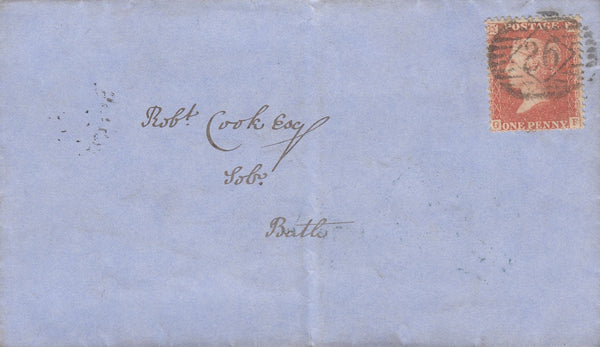 POSTAGE
26
ONE PENNY
Robt Cook Esq
Solr.
Bath